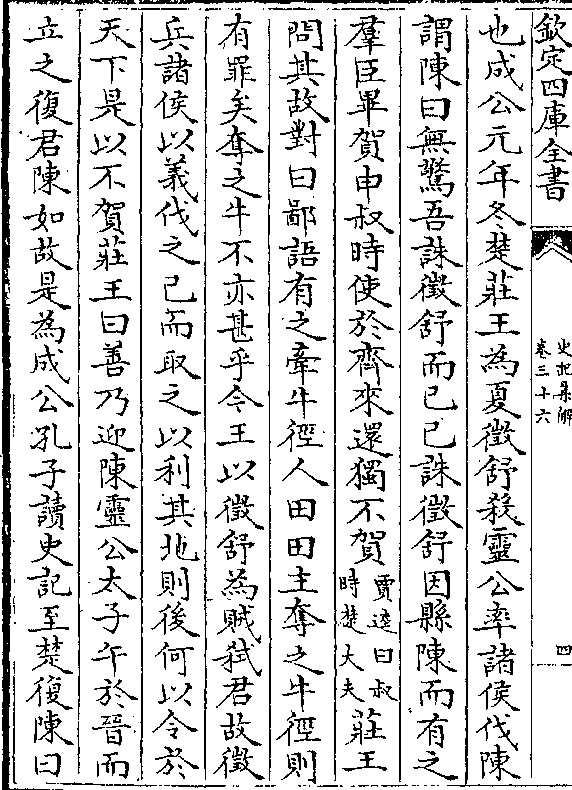 欽定四庫全書
史記集解
卷三十六
四
也成公元年冬楚莊王為夏徵舒殺靈公率諸侯伐陳
謂陳曰無驚吾誅徵舒而已已誅徵舒因縣陳而有之
羣臣畢賀申叔時使於齊來還獨不賀賈逵曰叔時楚大夫莊王
問其故對曰鄙語有之牽牛徑人田田主奪之牛徑則
有罪矣奪之牛不亦甚乎今王以徵舒為賊弑君故徵
兵諸侯以義伐之已而取之以利其地則後何以令於
天下是以不賀莊王曰善乃迎陳靈公太子午於晉而
立之復君陳如故是為成公孔子讀史記至楚復陳曰